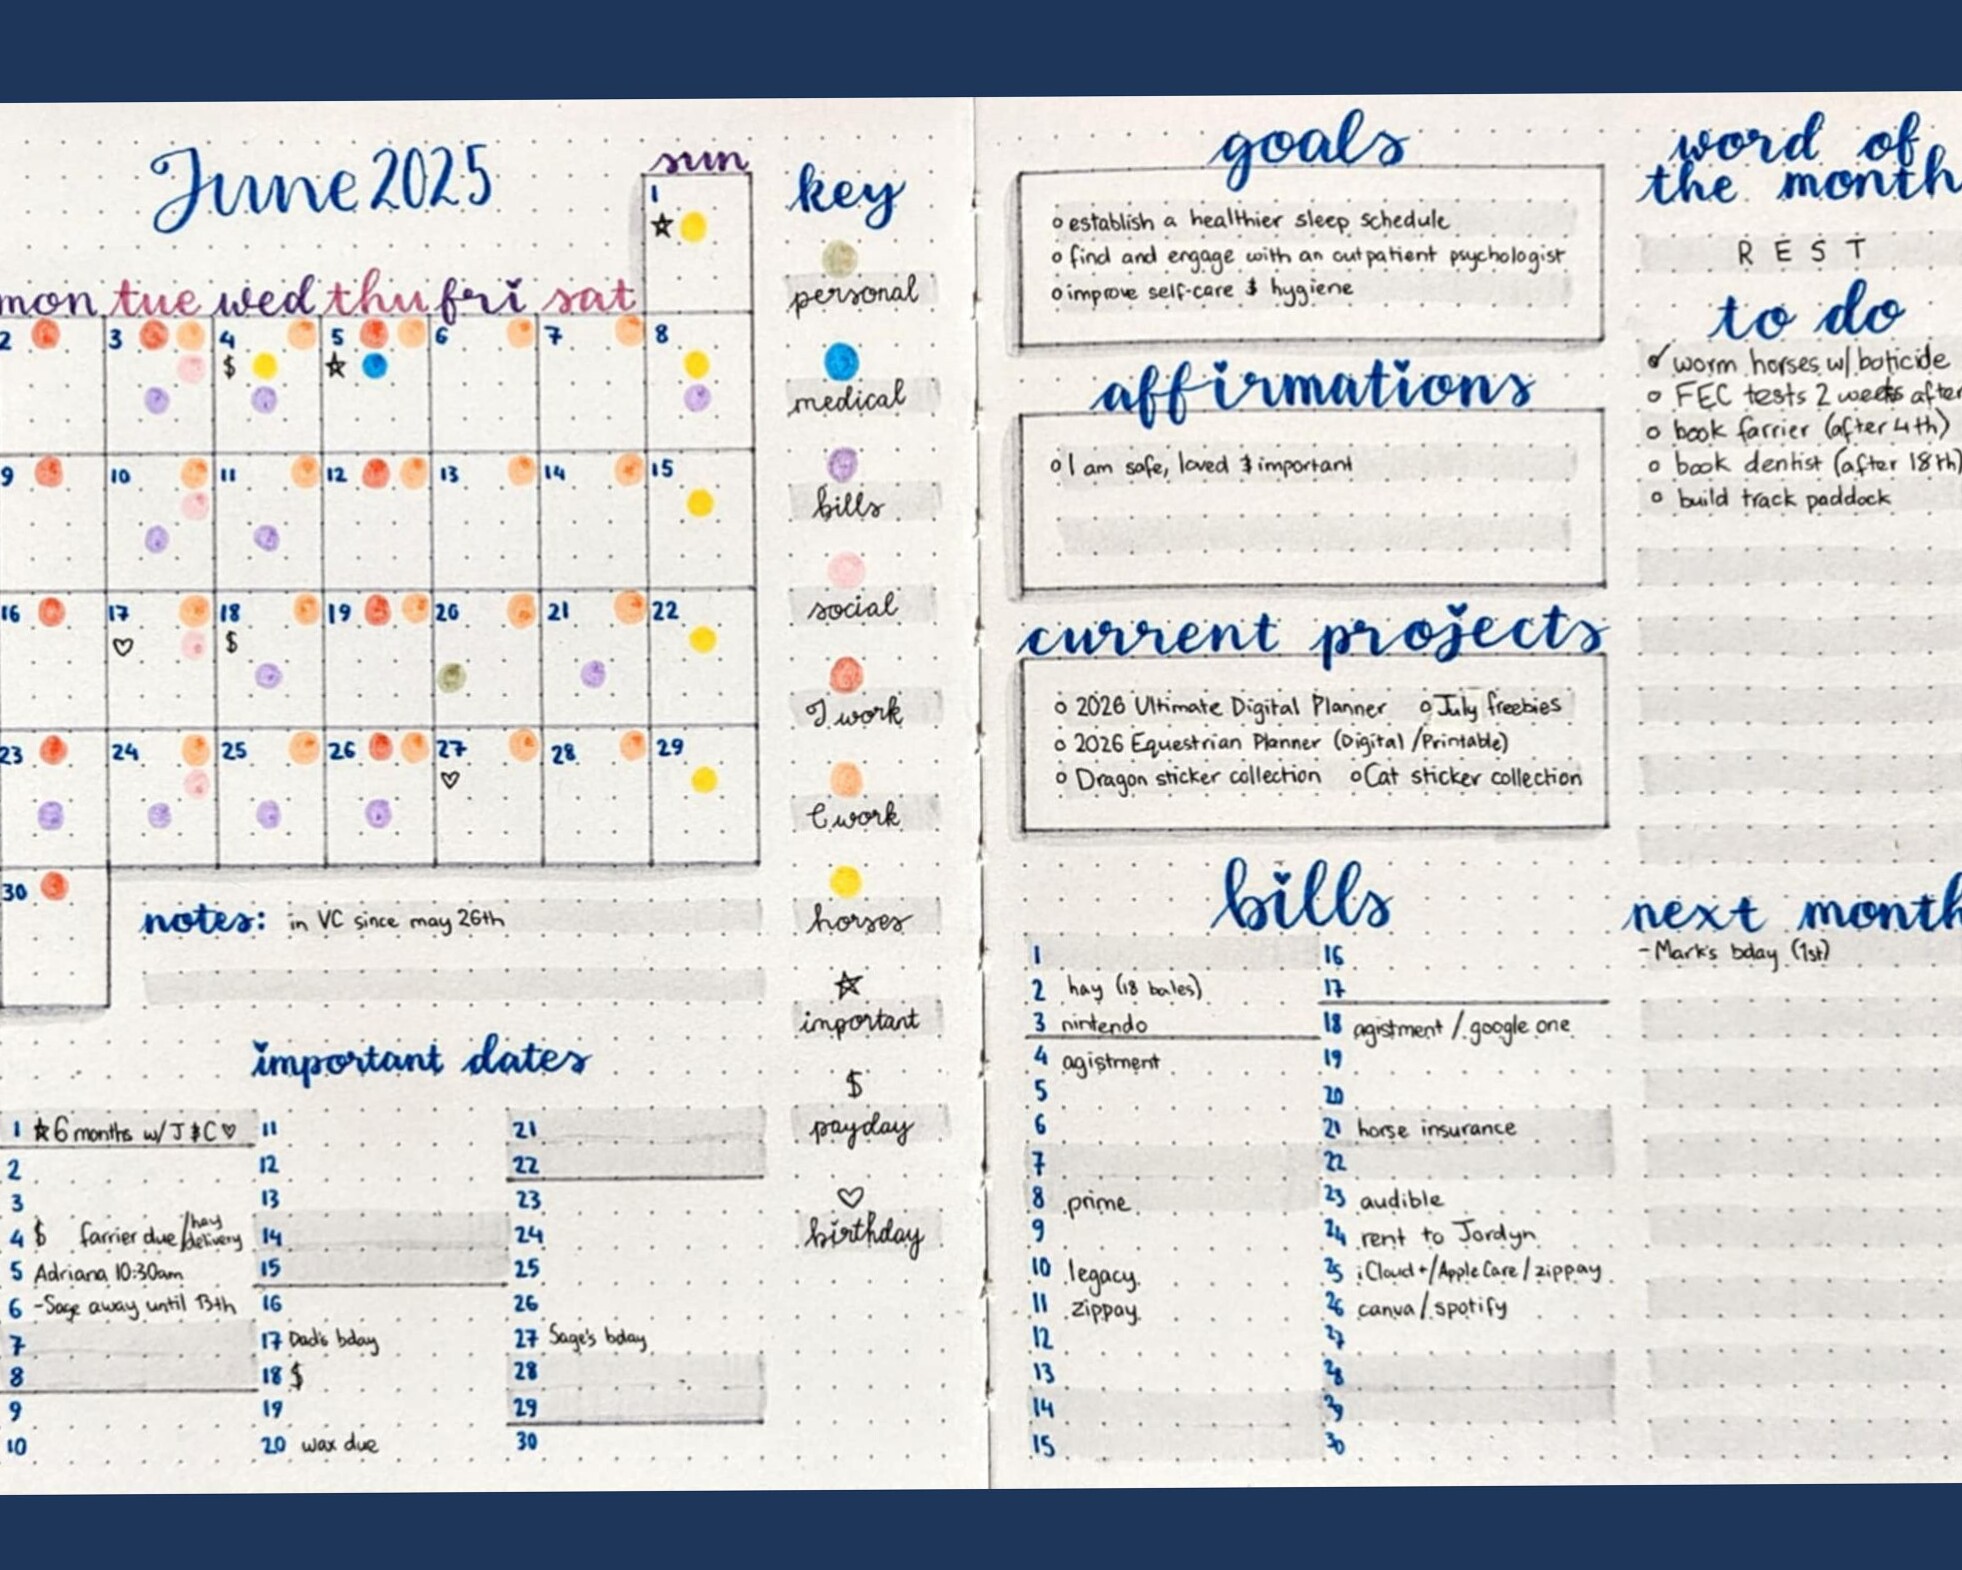 June 2025
sun
mon tue wed thu fri sat
1
2 3 4 5 6 7 8
$
9 10 11 12 13 14 15
16 17 18 19 20 21 22
$
23 24 25 26 27 28 29
30
notes: in VC since may 26th
important dates
1 ☆ 6 months w/ J & C ♡
2
3
4 $ farrier due/hay delivery
5 Adriana 10:30am
6 -Sage away until 13th
7
8
9
10
11
12
13
14
15
16
17 Dad's bday
18 $
19
20 wax due
21
22
23
24
25
26
27 Sage's bday
28
29
30
key
personal
medical
bills
social
J work
C work
horses
important
$
payday
birthday
goals
o establish a healthier sleep schedule
o find and engage with an outpatient psychologist
o improve self-care & hygiene
affirmations
o I am safe, loved & important
current projects
o 2026 Ultimate Digital Planner o July freebies
o 2026 Equestrian Planner (Digital/Printable)
o Dragon sticker collection o Cat sticker collection
bills
1
2 hay (18 bales)
3 nintendo
4 agistment
5
6
7
8 prime
9
10 legacy
11 zippay
12
13
14
15
16
17
18 agistment / google one
19
20
21 horse insurance
22
23 audible
24 rent to Jordyn
25 iCloud+/AppleCare/zippay
26 canva/spotify
27
28
29
30
word of
the month
REST
to do
worm horses w/ boticide
o FEC tests 2 weeks after
o book farrier (after 4th)
o book dentist (after 18th)
o build track paddock
next month
- Mark's bday (1st)